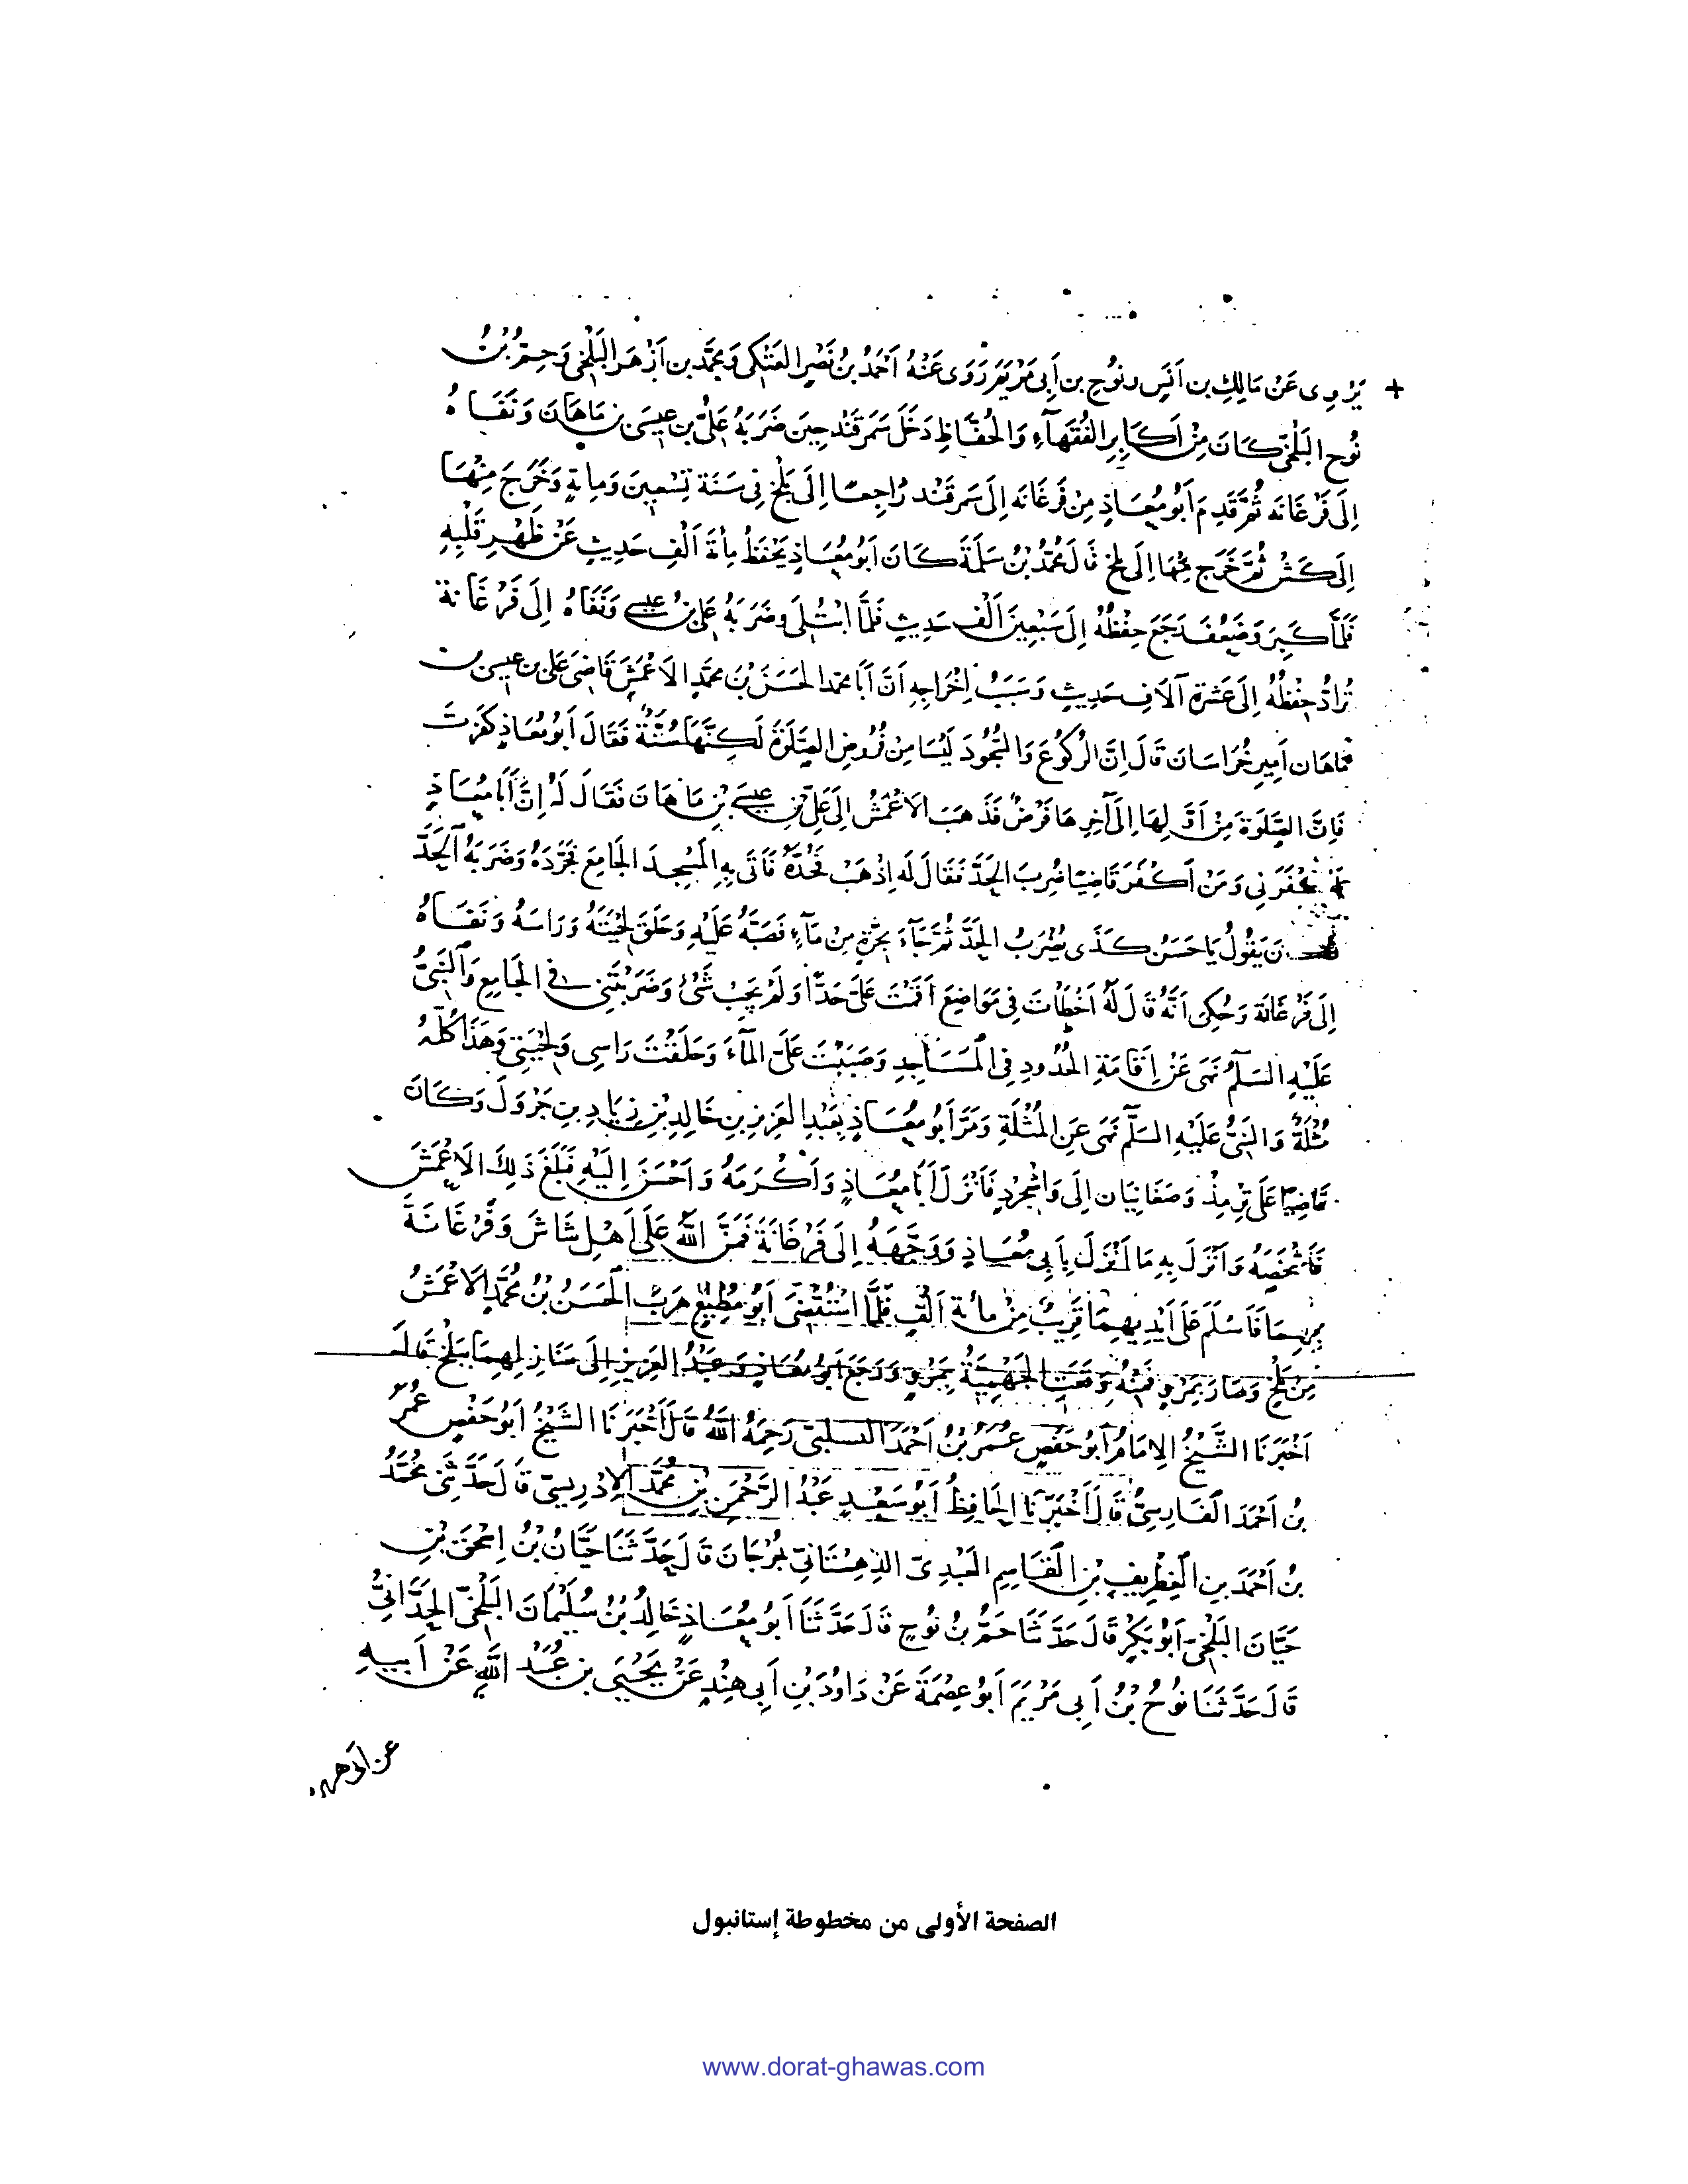 يَرْوِى عَنْ مَالِكِ بن اَنَسٍ ونُوحِ بن أَبِى مَرْيَمَ رَوَى عَنْهُ اَحْمَدُ بنُ نَصْرٍ العَتَكِى وَمحَمَّد بن اَزْهَر البَلْخِى وَحمّ بْنُ
نُوح البَلْخىّ كَانَ مِنْ اَكَابِرِ الفُقَهَآءِ وَالحُفَّاظِ دَخَلَ سَمَرقَنْد حِينَ ضَرَبَهُ عَلىُّ بن عِيسَى بن مَاهَانَ وَنَفَاهُ
اِلَى فَرْغَانَه ثُمَّ قَدِمَ اَبُو مُعَاذٍ مِنْ فَرْغَانَه اِلَى سَمَرقَنْد رَاجِعًا اِلَى بَلْخ فِى سَنَة تِسْعِينَ وَمِايةٍ وَخَرَجَ مِنْهَا
اِلَى كَشّ ثُمَّ خَرَجَ مِنْهَا اِلَى بلخ قَالَ مُحَمَّدُ بْنُ سَلَمَةَ كَانَ اَبُو مُعَاذٍ يَحْفَظُ مِاْةَ اَلْفِ حَدِيثٍ عَنْ ظَهْرِ قَلْبِهِ
فَلَمَّا كَبِرَ وَضَعُفَ رَجَعَ حِفْظُهُ اِلَى سَبْعِينَ اَلْف حَدِيثٍ فَلَمَّا ابْتُلِىَ وضَرَبَهُ عَلِىُّ بنُ عِيسى وَنَفَاهُ اِلَى فَرْغَانة
تُرَادُّ حِفْظُهُ اِلَى عَشرة آلاَفِ حَدِيثٍ وَسَبَبُ اِخْرَاجِهِ اَنَّ اَبَا محمد الحَسَنَ بْنَ محَمَّدٍ الاَعْمَشَ قَاضِىَ عَلى بن عيسى بن
مَاهَان اَمِيرِ خُرَاسَان قَالَ اِنَّ الرُّكُوعَ وَالسُّجُودَ لَيْسَا مِنْ فُرُوضِ الصَّلوَةِ لَكِنَّهَا سُنَّةٌ فَقَالَ اَبُو مُعَاذٍ كَفَرْتَ
فَاِنَّ الصَّلَوةَ مِنْ اَوَّلِهَا اِلَى آخِرِهَا فَرْضٌ فَذَهَبَ الاَعْمَشُ اِلَى عَلِىّ بْنِ عِيسَى بْنِ مَاهَانَ فَقَالَ لَهُ اِنَّ اَبَا مُعَاذٍ
كَفَّرَنِى وَمَنْ اَكْفَرَ قَاضِيًا ضُرِبَ الحَدَّ فَقَالَ لَه اِذْهَبْ فَحُدَّهُ فَاَتَى بِهِ المَسْجِدَ الجَامِعَ فَجَرَّدَهُ وَضَرَبَهُ الْحَدَّ
يَقُولُ يَا حَسَنُ كَذَى يُضْرَبُ الحَدَّ ثُمَّ جَآءَ بِجَرَّةٍ مِنْ مَآءٍ فَصَبَّهُ عَلَيْهِ وَحَلَقَ لِحْيَتَهُ وَرَاسَهُ وَنَفَاهُ
اِلَى فَرْغَانَة وَحُكِىَ اَنَّهُ قَالَ لَهُ اَخْطَأْتَ فِى مَوَاضِيعَ اَقَمْتَ عَلَىَّ حَدًّا وَلَمْ يَجِبْ شَىْءٌ وَضَرَبْتَنِى فى الجَامِعِ وَالنَّبِىُّ
عَلَيْهِ السَّلَمُ نَهَى عَنْ اِقَامَةِ الحُدُودِ فِى المَسَاجِدِ وَصَبَبْتَ عَلَىَّ المَآءَ وَحَلَقْتَ رَاسِى وَلِحْيَتِى وَهَذَا كُلُّهُ
مُثْلَةٌ وَالنَّبِىُّ عَلَيْهِ السَّلَم نَهَى عَنِ المُثْلَةِ وَمَرَّ اَبُو مُعَاذٍ بِعَبْدِ العَزِيزِ بنِ خَالِدِ بْنِ زِيَادِ بنِ جَرْوَلَ وَكَانَ
قَاضِيًا عَلَى تِرْمِذْ وَصَغَانِيَان اِلَى وَاشْجِرْدٍ فَاَنْزَلَ اَبَا مُعَاذٍ وَاَكْرَمَهُ وَاَحْسَنَ اِلَيْهِ فَبَلَغَ ذَلِكَ الاَعْمَشَ
فَاَشْخَصَهُ وَاَنْزَلَ بِهِ مَا اَنْزَلَ بِاَبِى مُعَاذٍ وَوَجَّهَهُ اِلَى فَرْغَانَةَ فَمَنَّ اللَّهُ عَلَى اَهْلِ شَاشَ وَفَرْغَانَةَ
بِهِمَا فَاَسْلَمَ عَلَى اَيْدِيهِمَا قَرِيبٌ مِنْ مائة اَلْفٍ فَلَمَّا اسْتُقْضِىَ اَبُو مُطِيعٍ هَرَبَ الْحَسَنُ بْنُ مُحَمَّدٍ الاَعْمَشُ
مِنْ بَلْخٍ وَصَارَ بِمَرْو وَقَعَتِ الجَهْمِيَّةُ بِمَرْو وَرَجَعَ اَبُو مُعَاذٍ وَعَبْدُ العَزِيزِ اِلَى مَنَازِلِهِمَا بِبَلْخٍ قَالَ
اَخْبَرَنَا الشَّيْخُ الاِمَامُ اَبُو حَفْصٍ عُمَرُ بْنُ اَحْمَدَ رَحِمَهُ اللَّهُ قَالَ اَخْبَرَنَا الشَّيْخُ اَبُو حَفْصٍ عُمَرُ
بْنُ اَحْمَدَ الفَارِسِىُّ قَالَ اَخْبَرَنَا الحَافِظُ اَبُو سَعْدٍ عَبْدُ الرَّحْمَنِ بْنِ مُحَمَّد الاِدْرِيسِىّ قَالَ حَدَّثَنِى مُحَمَّدُ
بْنُ اَحْمَدَ بنِ الْغِطْرِيفِ بْنِ الْقَاسِمِ العَبْدِىّ الدِهِسْتَانِىّ بجُرْجَانَ قَالَ حَدَّثَنَا حَيَّانُ بْنُ اِسْحَقَ بْنِ
حَيَّانَ البَلْخِىّ اَبُو بَكْرٍ قَالَ حَدَّثَنَا حَمُّ بْنُ نُوحٍ قَالَ حَدَّثَنَا اَبُو مُعَاذٍ خَالِدُ بْنُ سُلَيْمَانَ البَلْخِىّ الحَدَّانِىُّ
قَالَ حَدَّثَنَا نُوحُ بْنُ اَبِى مَرْيَمَ اَبُو عِصْمَةَ عَنْ دَاوُدَ بْنِ اَبِى هِنْدٍ عَنْ يَحْيَى بن عُبَيْد اللَّهِ عَنْ اَبِيهِ
عن ابى هريرة
الصفحة الأولى من مخطوطة إستانبول
www.dorat-ghawas.com